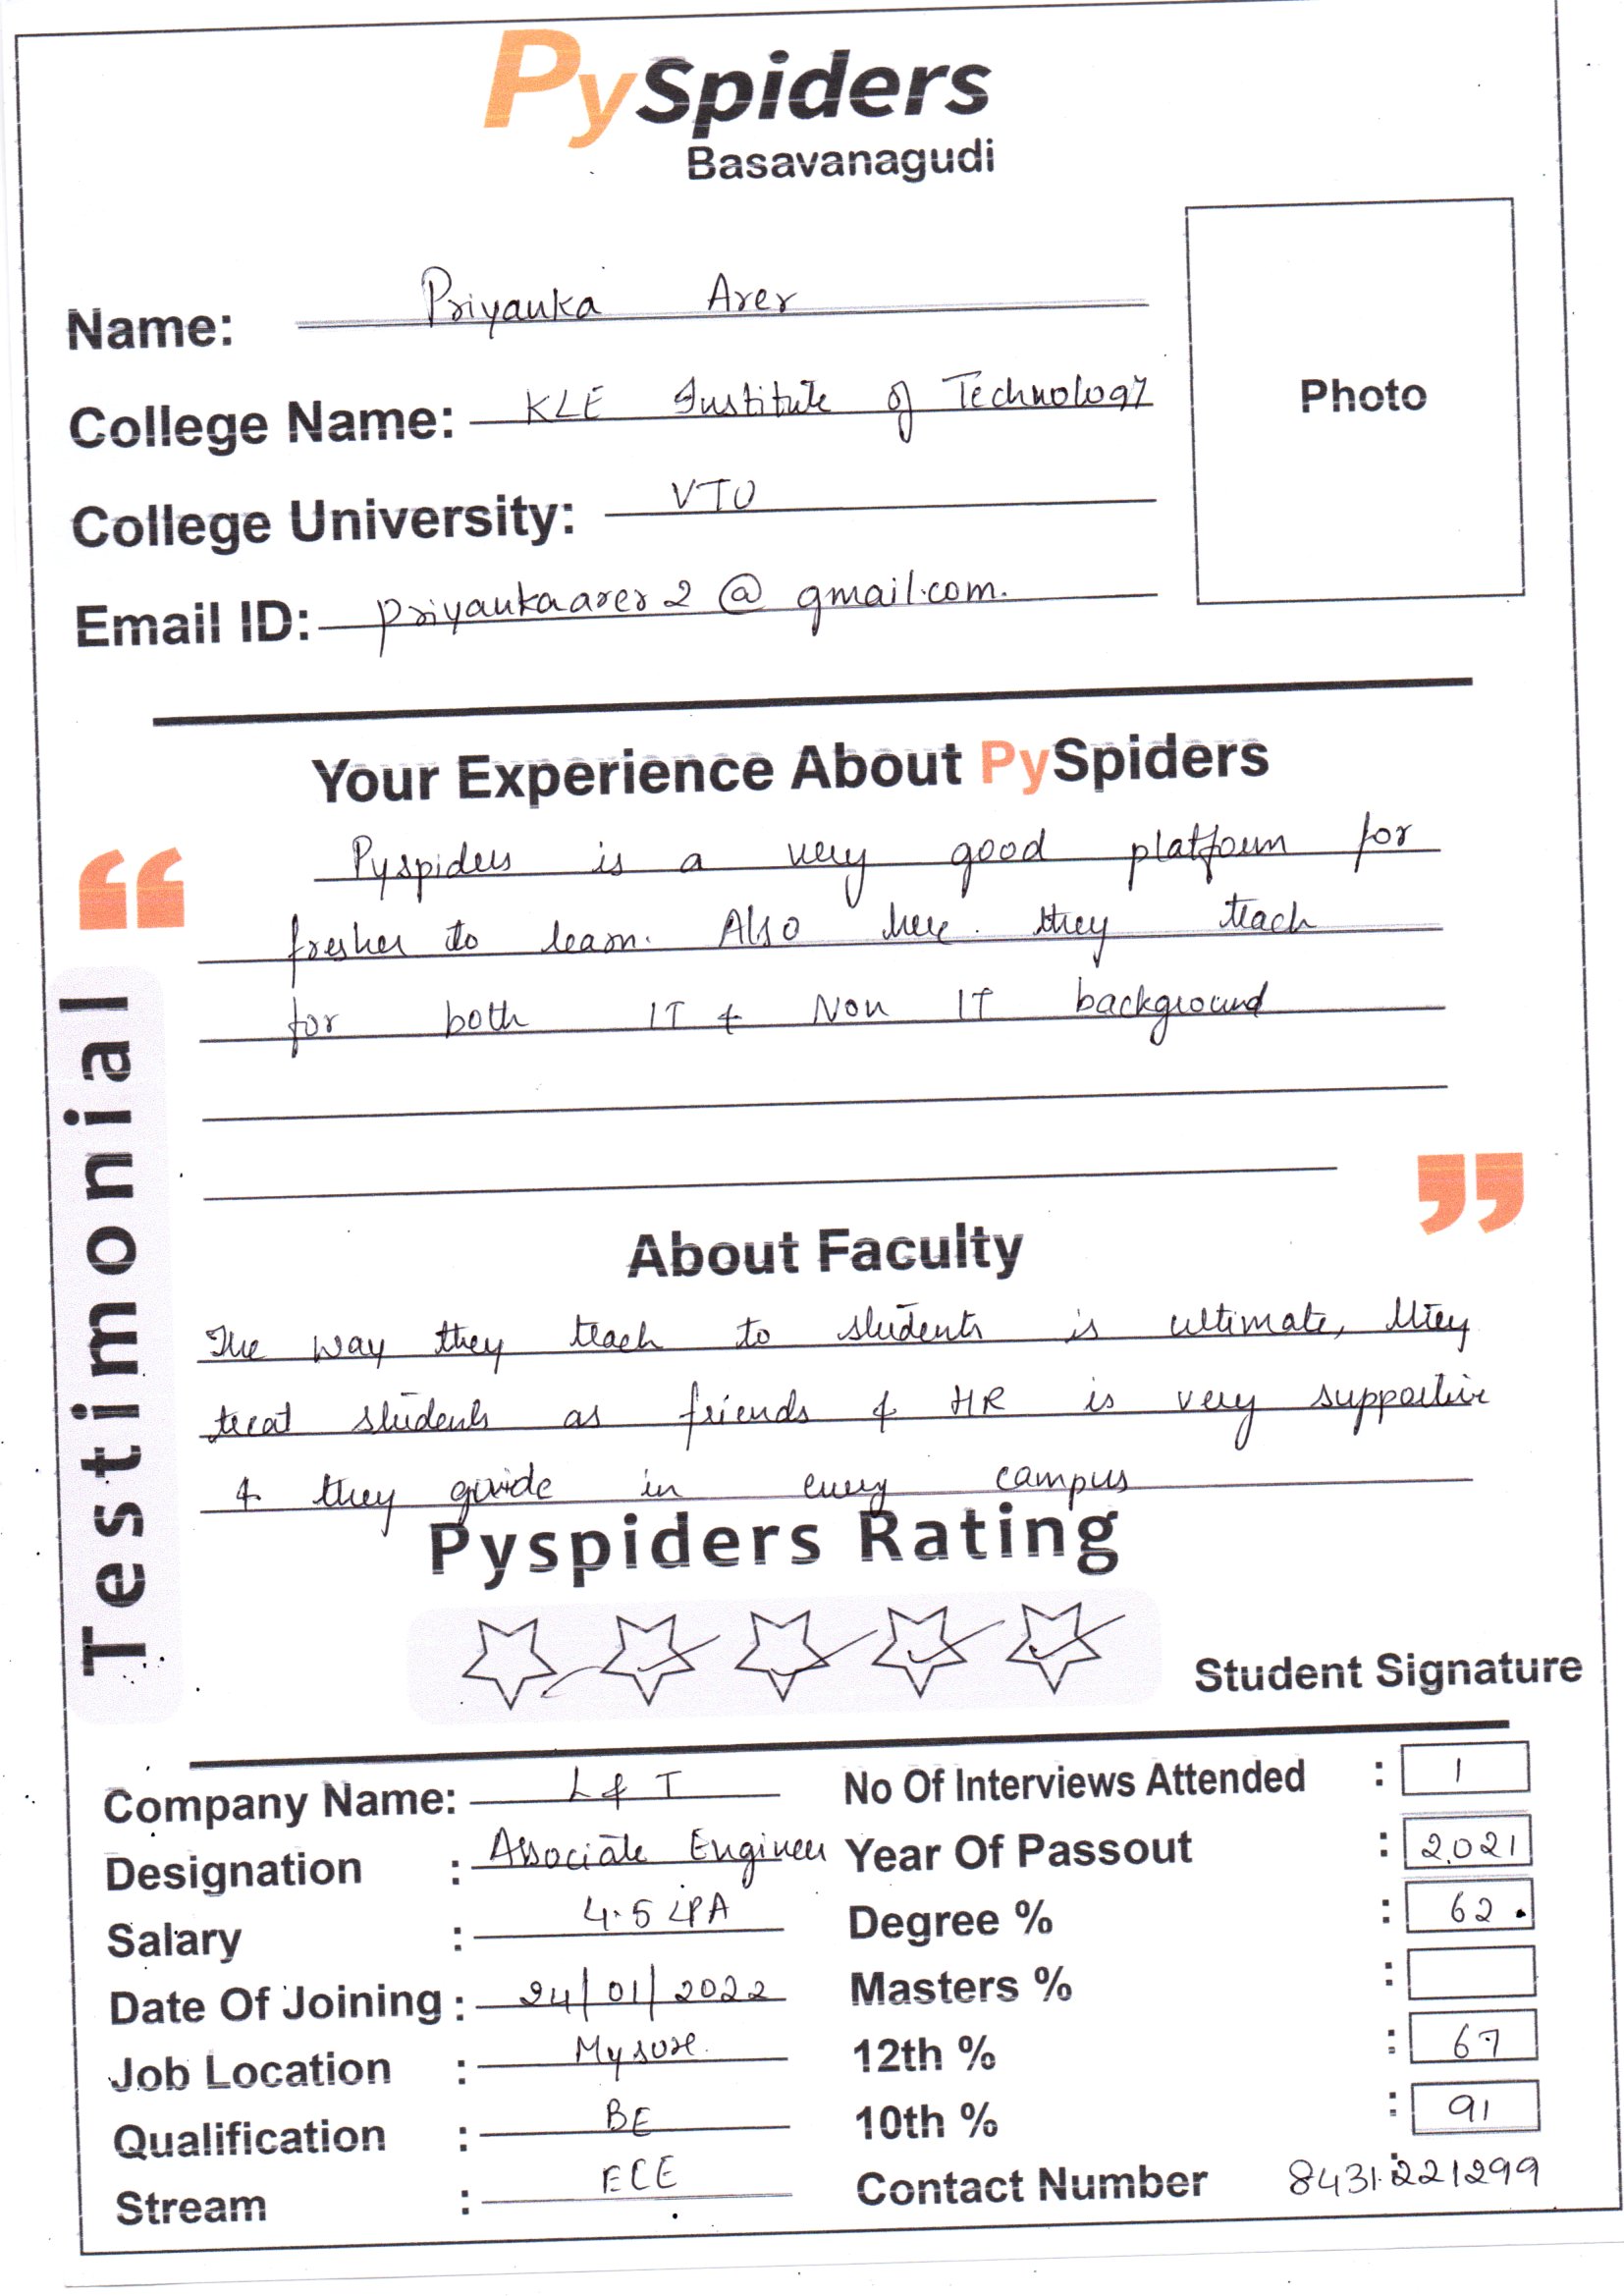 PySpiders
Basavanagudi
Name: Priyanka Arer
College Name: KLE Institute of Technology
College University: VTU
Email ID: priyankaarer2@gmail.com.
Photo
Your Experience About PySpiders
Pyspiders is a very good platform for
fresher to learn. Also here they teach
for both IT & Non IT background
Testimonial
About Faculty
The way they teach to students is ultimate, they
treat students as friends & HR is very supportive
& they guide in every campus
Pyspiders Rating
Student Signature
Company Name: L & T
Designation : Associate Engineer
Salary : 4.5 LPA
Date Of Joining : 24/01/2022
Job Location : Mysore.
Qualification : BE
Stream : ECE
No Of Interviews Attended : 1
Year Of Passout : 2021
Degree % : 62
Masters % :
12th % : 67
10th % : 91
Contact Number : 8431221299